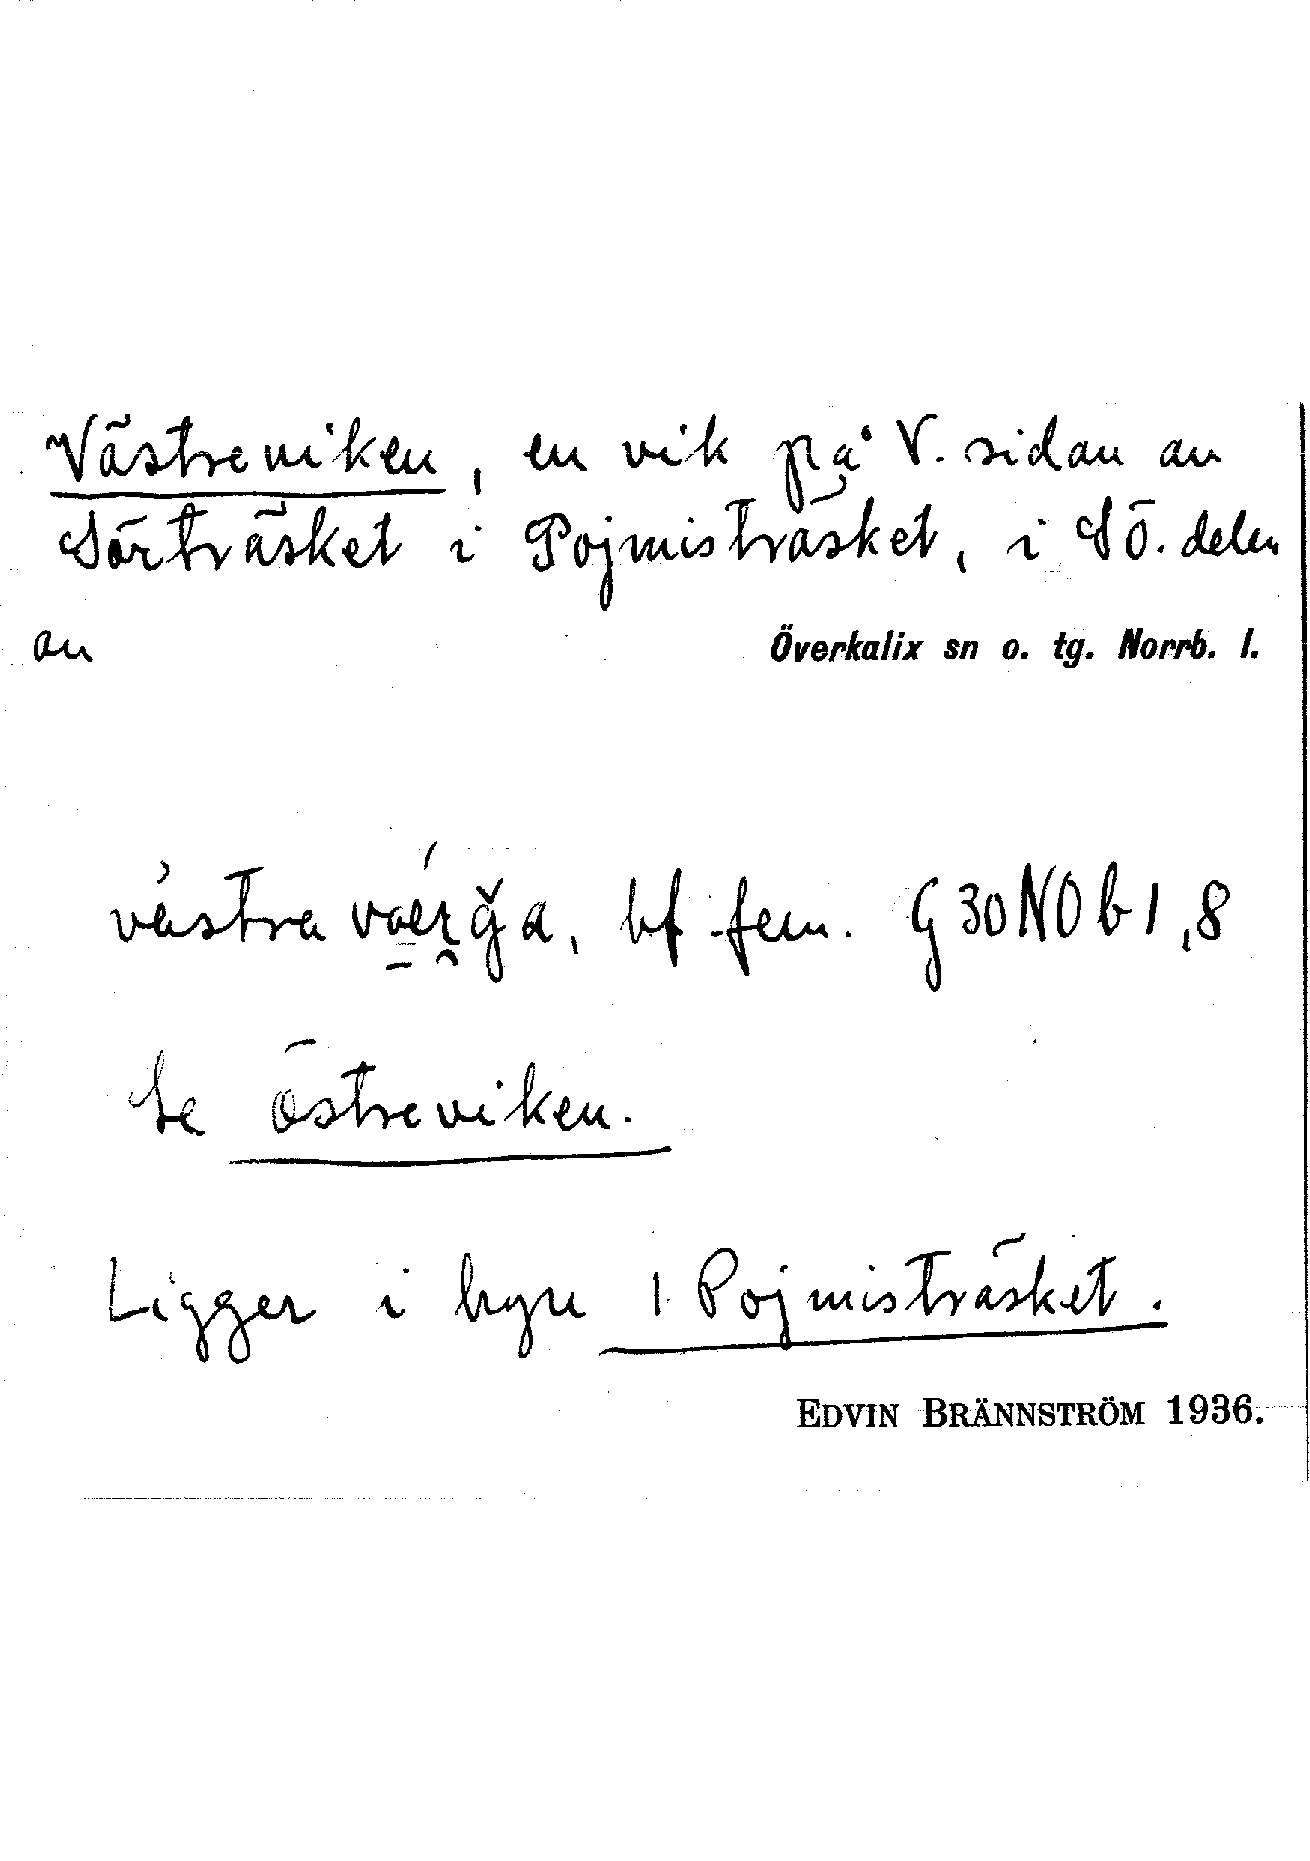 Västreviken, en vik på V. sidan av
Sörträsket i Pojmisträsket, i SÖ. delen
av Överkalix sn o. tg. Norrb. l.
västra , bf. fem. G30NOb1,8
Se Östreviken.
Ligger i byn 1 Pojmisträsket.
EDVIN BRÄNNSTRÖM 1936.